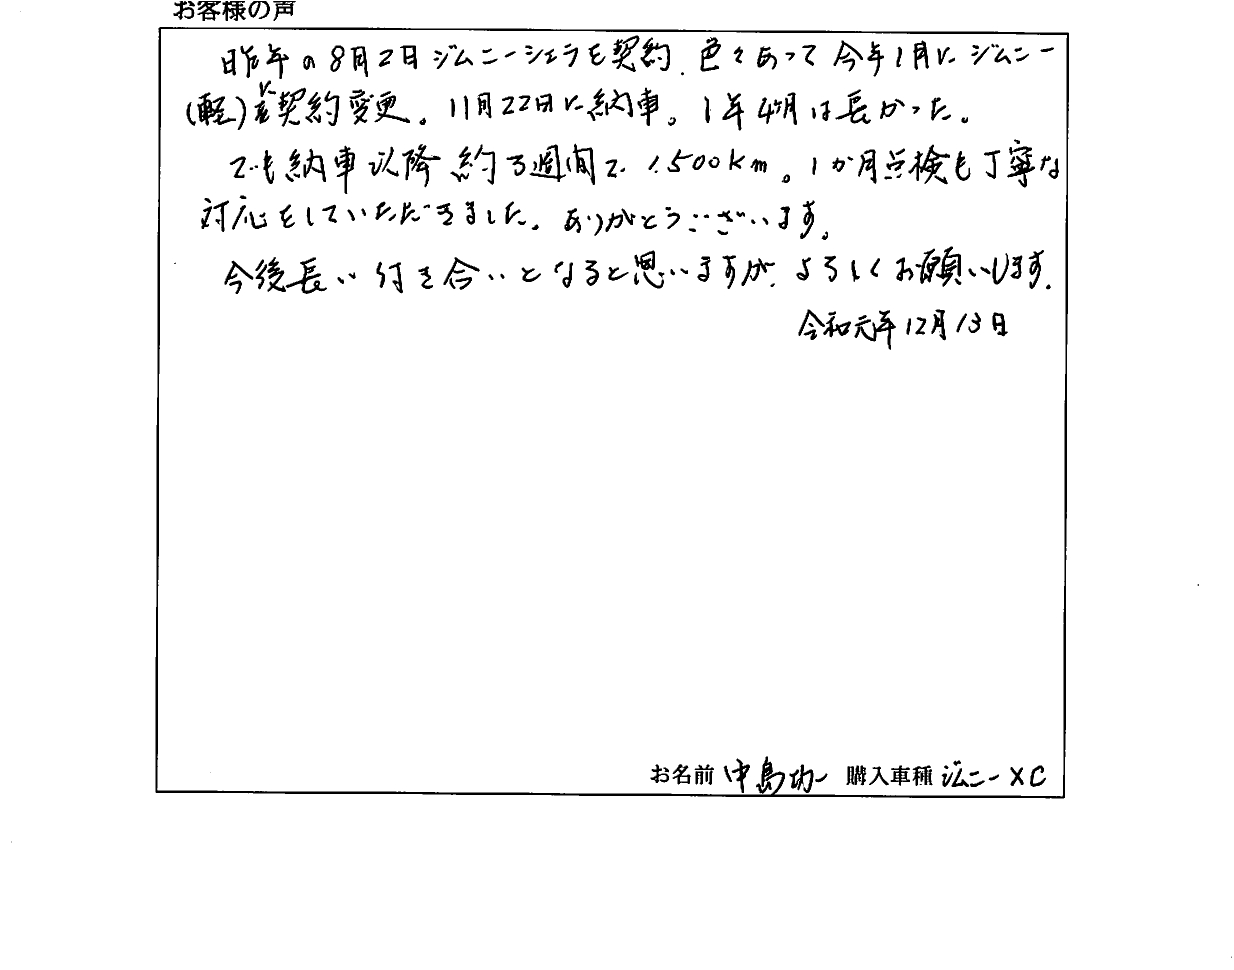 お客様の声
昨年の8月2日ジムニーシエラを契約、色々あって今年1月にジムニー
(軽)に契約変更。11月22日に納車。1年4ヶ月は長かった。
でも納車以降約3週間で1500km。1か月点検も丁寧な
対応をしていただきました。ありがとうございます。
今後長い付き合いとなると思いますが、よろしくお願いします。
令和元年12月13日
お名前 中島功一 購入車種 ジムニーXC